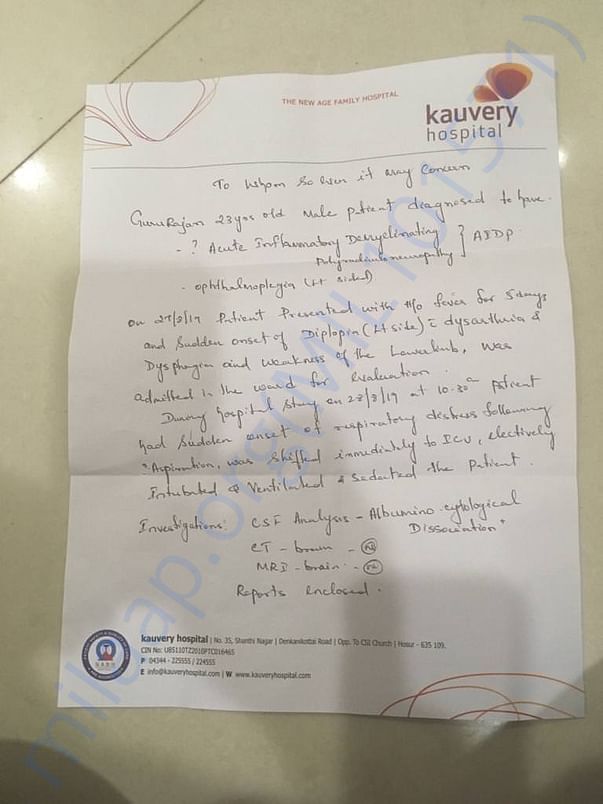 THE NEW AGE FAMILY HOSPITAL
kauvery
hospital
To Whom So Ever it may Concern
GuruRajan 23 yrs old Male patient diagnosed to have.
- ? Acute Inflammatory Demyelinating } AIDP.
Polyradiculoneuropathy
- Ophthalmoplegia (Lt sided)
On 27/8/19 Patient Presented with H/o fever for 5 days
and Sudden onset of Diplopia (Lt side) c dysarthria &
Dysphagia and weakness of the Lowerlimb, was
admitted in the ward for Evaluation.
During hospital Stay on 28/8/19 at 10.30am patient
had Sudden onset of respiratory distress following
"Aspiration, was Shifted immediately to ICU, electively
Intubated & Ventilated & Sedated the Patient.
Investigations: CSF Analysis - Albumino-cytological
Dissociation"
CT - brain -
MRI - brain -
Reports Enclosed.
kauvery hospital | No. 35, Shanthi Nagar | Denkanikottai Road | Opp. To CSI Church | Hosur - 635 109.
CIN No: U85110TZ2010PTC016465
P 04344 - 225555 / 224555
E info@kauveryhospital.com | W www.kauveryhospital.com
NABH